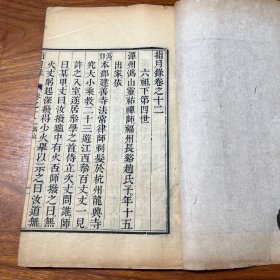 指月錄卷之十二
六祖下第四世
潭州溈山靈祐禪師福州長谿趙氏子年十五
出家依
本郡建善寺法常律師剃髮於杭州龍興寺
究大小乘教二十三遊江西參百丈丈一見
許之入室遂居參學之首侍立次丈問誰師
曰某甲丈曰汝撥鑪中有火否師撥之曰無
火丈躬起深撥得少火舉以示之曰汝道無